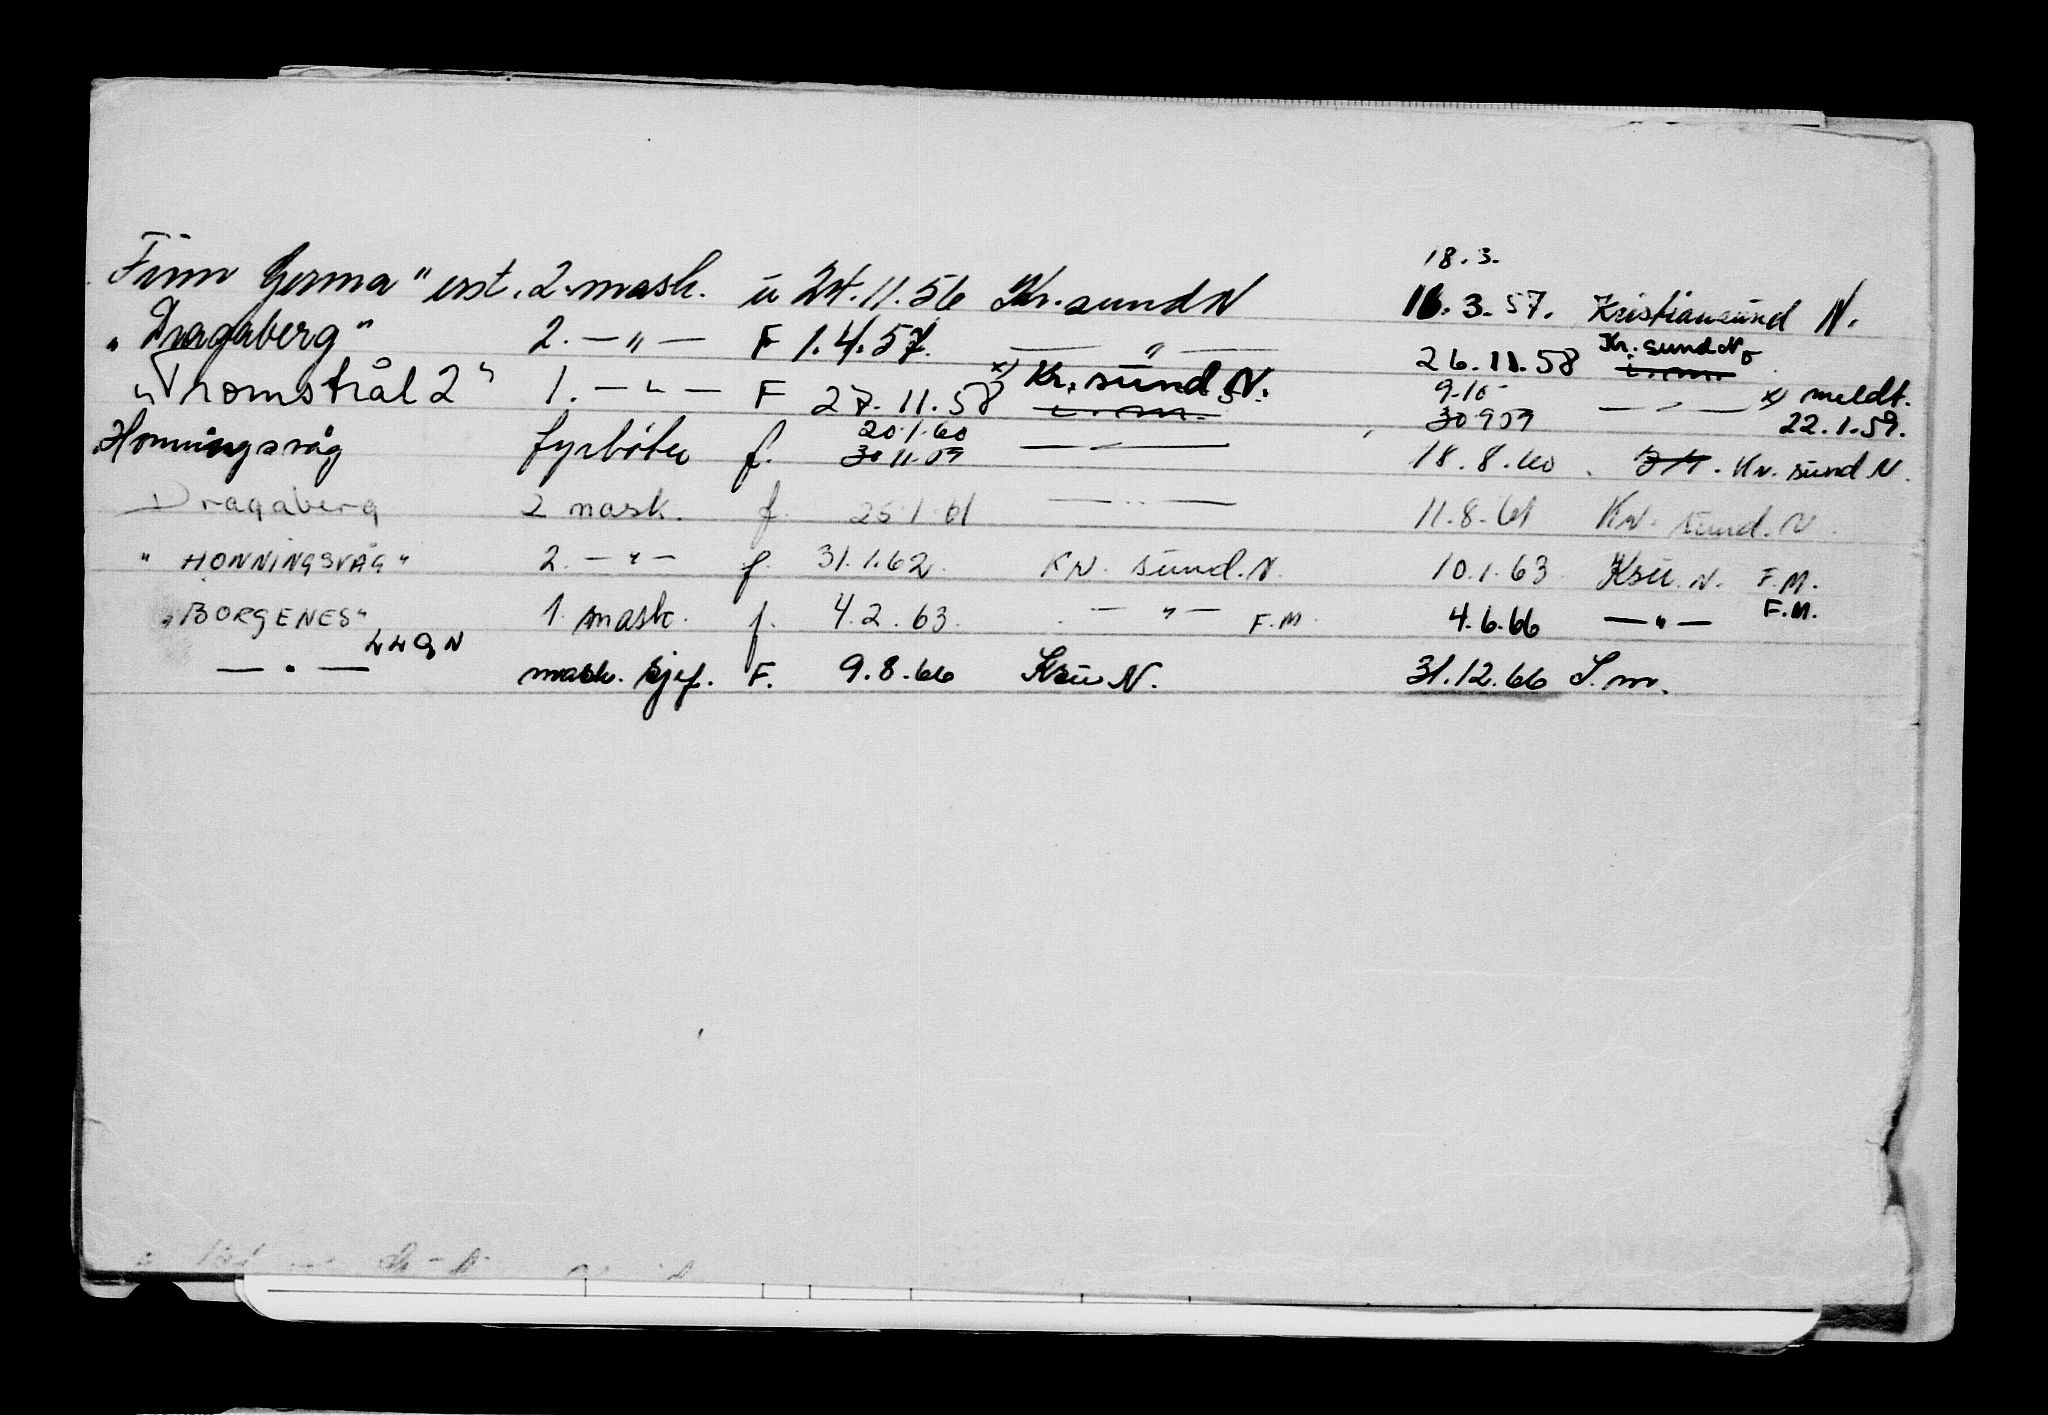 18.3.
Finn Germa" ass. 2. mask. u 24.11.56 Kr.sund N 16.3.57. Kristiansund N.
"Dragaberg" 2. — " — F 1.4.57. — " — 26.11.58 Kr. sund N. i.m.
"Tromstrål 2" 1. — " — F 27.11.58 x) Kr. sund N. i.m. 9.10 30 9 59 — " — x) meldt. 22.1.59.
Honningsvåg fyrbøter f. 20.1.60 30 11.59 — " — 18.8.60. Kr. sund N.
Dragaberg 2 mask. f. 25.1.61 — " — 11.8.61 Kr. sund. N.
" HONNINGSVÅG " 2. — " — f. 31.1.62. Kr. sund. N. 10.1.63 Ksu. N. F.M.
"BORGENES" 1. mask. f. 4.2.63. — " — F.M. 4.6.66 — " — F.M.
LLQN
— " — mask. sjef. F. 9.8.66 Ksu N. 31.12.66 S.m.